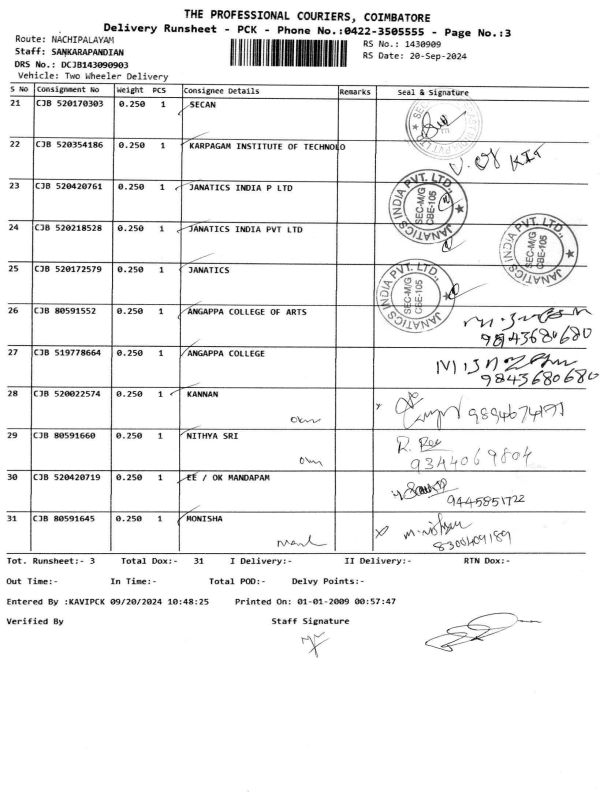 THE PROFESSIONAL COURIERS, COIMBATORE
Delivery Runsheet - PCK - Phone No.:0422-3505555 - Page No.:3
Route: NACHIPALAYAM
RS No.: 1430909
Staff: SANKARAPANDIAN
RS Date: 20-Sep-2024
DRS No.: DCJB143090903
Vehicle: Two Wheeler Delivery
S No Consignment No Weight PCS Consignee Details Remarks Seal & Signature
21 CJB 520170303 0.250 1 SECAN
22 CJB 520354186 0.250 1 KARPAGAM INSTITUTE OF TECHNOLO
KIT
23 CJB 520420761 0.250 1 JANATICS INDIA P LTD
JANATICS INDIA PVT. LTD.,
SEC-M/G
CBE-105
24 CJB 520218528 0.250 1 JANATICS INDIA PVT LTD
JANATICS INDIA PVT. LTD.,
SEC-M/G
CBE-105
25 CJB 520172579 0.250 1 JANATICS
JANATICS INDIA PVT. LTD.,
SEC-M/G
CBE-105
26 CJB 80591552 0.250 1 ANGAPPA COLLEGE OF ARTS
9843680680
27 CJB 519778664 0.250 1 ANGAPPA COLLEGE
9843680680
28 CJB 520022574 0.250 1 KANNAN
29 CJB 80591660 0.250 1 NITHYA SRI
9344069804
30 CJB 520420719 0.250 1 EE / OK MANDAPAM
9445851722
31 CJB 80591645 0.250 1 MONISHA
8300409189
Tot. Runsheet:- 3 Total Dox:- 31 I Delivery:- II Delivery:- RTN Dox:-
Out Time:- In Time:- Total POD:- Delvy Points:-
Entered By :KAVIPCK 09/20/2024 10:48:25 Printed On: 01-01-2009 00:57:47
Verified By Staff Signature